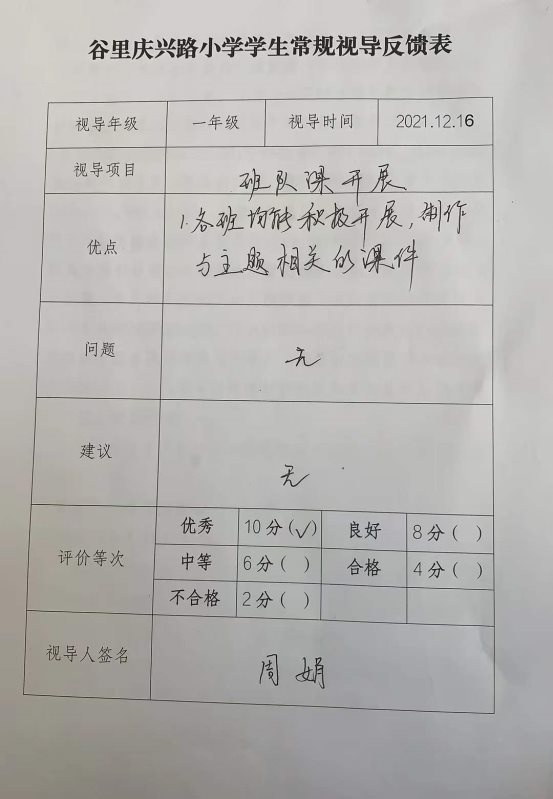 谷里庆兴路小学学生常规视导反馈表
视导年级 一年级 视导时间 2021.12.16
视导项目 班队课开展
优点 1.各班均能积极开展,制作
与主题相关的课件
问题 无
建议 无
评价等次 优秀 10分(√) 良好 8分( )
中等 6分( ) 合格 4分( )
不合格 2分( )
视导人签名 周娟